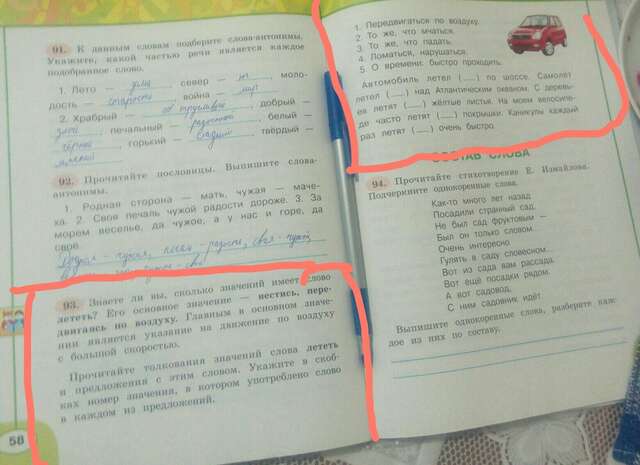 91. К данным словам подберите слова-антонимы.
Укажите, какой частью речи является каждое
подобранное слово.
1. Лето – зима, север – юг, моло-
дость – старость, война – мир.
2. Храбрый – трусливый, добрый –
злой, печальный – радостный, белый –
чёрный, горький – сладкий, твёрдый –
мягкий
92. Прочитайте пословицы. Выпишите слова-
антонимы.
1. Родная сторона — мать, чужая — маче-
ха. 2. Своя печаль чужой радости дороже. 3. За
морем веселье, да чужое, а у нас и горе, да
своё.
93. Знаете ли вы, сколько значений имеет слово
лететь? Его основное значение — нестись, пере-
двигаясь по воздуху. Главным в основном значе-
нии является указание на движение по воздуху
с большой скоростью.
Прочитайте толкования значений слова лететь
и предложения с этим словом. Укажите в скоб-
ках номер значения, в котором употреблено слово
в каждом из предложений.
58
1. Передвигаться по воздуху.
2. То же, что мчаться.
3. То же, что падать.
4. Ломаться, нарушаться.
5 О времени: быстро проходить.
Автомобиль летел (__) по шоссе. Самолёт
летел (__) над Атлантическим океаном. С деревь-
ев летят (__) жёлтые листья. На моем велосипе-
де часто летят (__) покрышки. Каникулы каждый
раз летят (__) очень быстро.
СОСТАВ СЛОВА
94. Прочитайте стихотворение Е. Измайлова.
Подчеркните однокоренные слова.
Как-то много лет назад
Посадили странный сад.
Не был сад фруктовым —
Был он только словом.
Очень интересно
Гулять в саду словесном...
Вот из сада вам рассада.
Вот ещё посадки рядом.
А вот садовод,
С ним садовник идёт.
Выпишите однокоренные слова, разберите каж-
дое из них по составу.